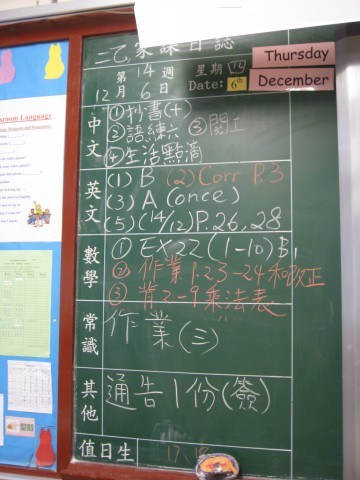 二乙家課日誌
第14週 星期四 Thursday
12月6日 Date: 6th December
中文
①抄書(十)
②語練六 ③閱工
④生活點滴
英文
(1) B (2) Corr P.3
(3) A (once)
(5) (14/12) P.26,28
數學
① EX 22 (1-10) B1
② 作業1:23-24和改正
③ 背2-9乘法表
常識
作業(三)
其他
通告1份(簽)
值日生 17, 18
room Language